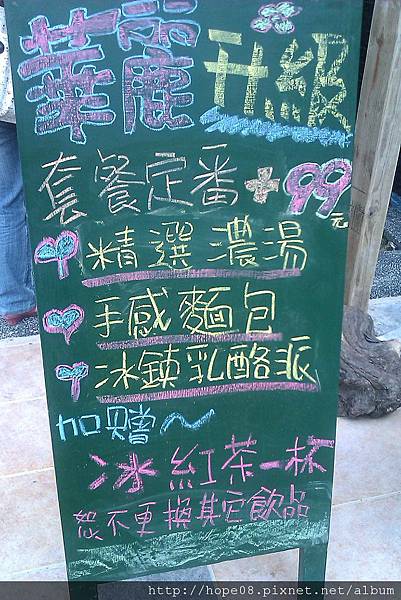 華麗升級
套餐定番+99元
精選濃湯
手感麵包
冰鎮乳酪派
加贈～
冰紅茶一杯
恕不更換其它飲品
http://hope08.pixnet.net/album